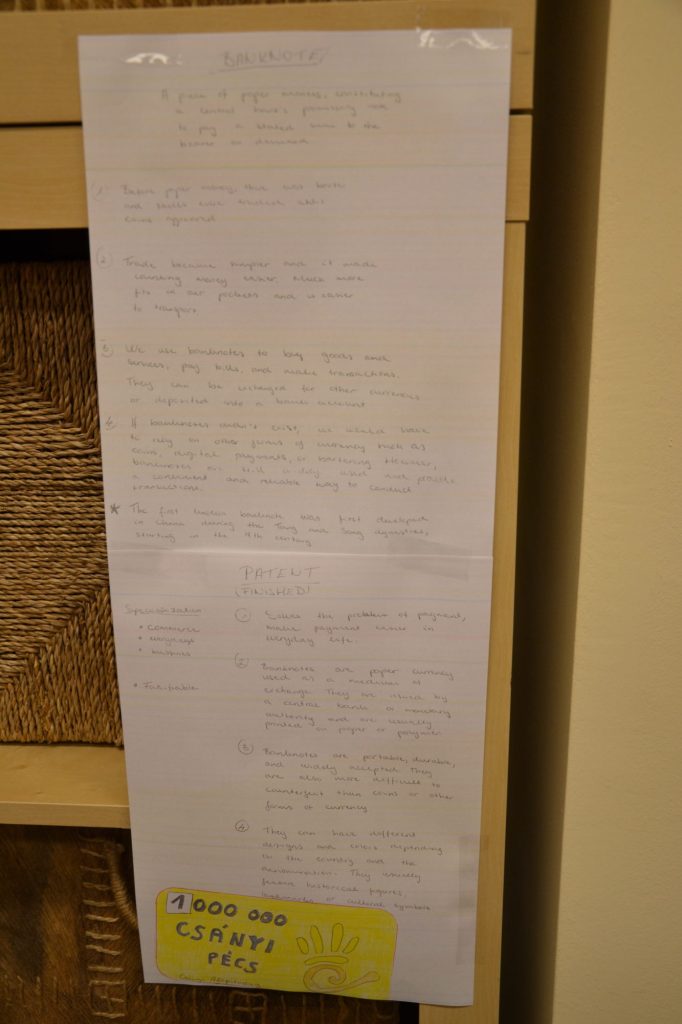 BANKNOTE
A piece of paper money, constituting
a central bank's promissory note
to pay a stated sum to the
bearer on demand
① Before paper money, there was
and shells were
coins appeared
② Trade became simpler and it made
counting money easier. Much more
fits in our pockets and is easier
to transport
③ We use banknotes to buy goods and
services, pay bills, and make transactions.
They can be exchanged for other currencies
or deposited into a bank account
④ If banknotes didn't exist, we would have
to rely on other forms of currency such as
coins, digital payments, or bartering. However,
banknotes are still widely used and provide
a convenient and reliable way to conduct
transactions.
* The first banknote was first developed
in China during the Tang and Song dynasties,
starting in the century
PATENT
(FINISHED)
Specialization
• commerce
•
• business
•
① Solves the problem of payment,
make payment easier in
everyday life.
② Banknotes are paper currency
used as a medium of
exchange. They are issued by
a central bank or monetary
authority and are usually
printed on paper or polymer
③ Banknotes are portable, durable,
and widely accepted. They
are also more difficult to
counterfeit than coins or other
forms of currency
④ They can have different
designs and colors depending
on the country and the
denomination. They usually
feature historical figures,
landmarks or cultural symbols
1 000 000
CSÁNYI
PÉCS